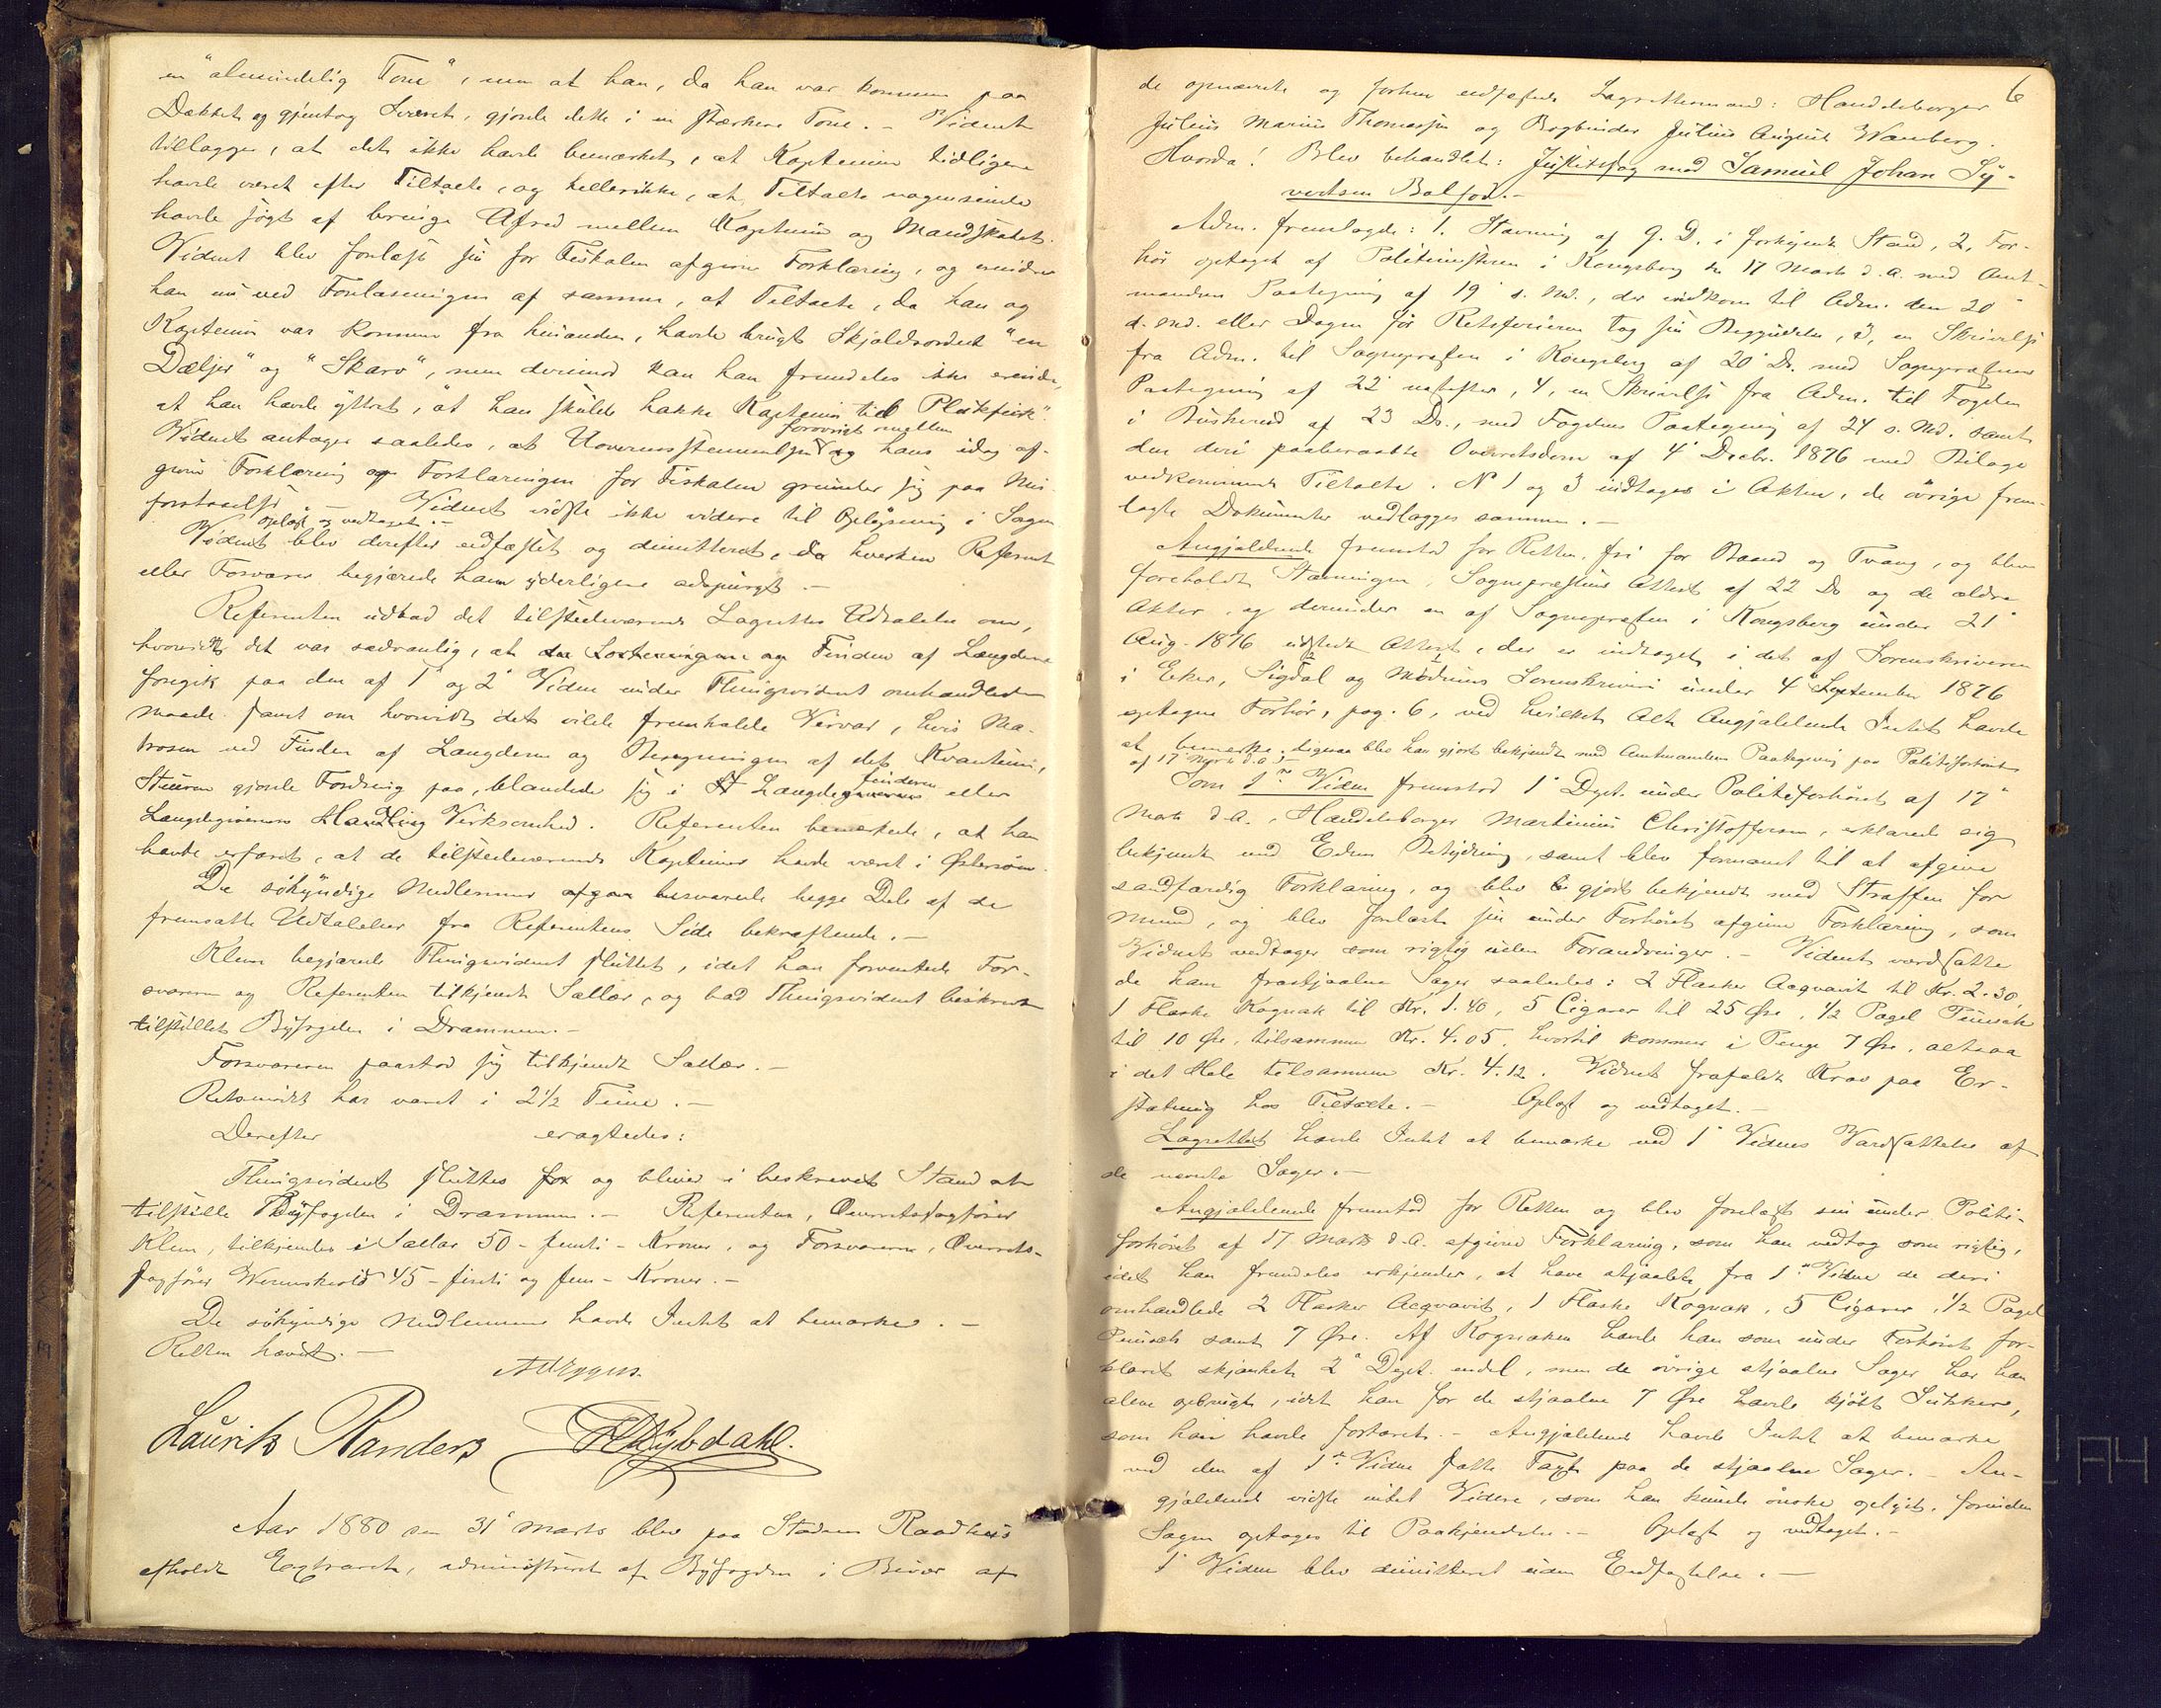 en "almindelig Tone", men at han, da han var kommen paa
Dækket og gjentog Svaret, gjorde dette i en stærkere Tone. – Vidnet
tillagger, at det ikke havde bemærket, at Kapteinen tidligere
havde været efter Tiltalte, og hellerikke, at Tiltalte nogensinde
havde søgt at bringe Ufred mellem Kaptein og Mandskabet.
Vidnet blev forelæst sin for Fiskalen afgivne Forklaring, og erindrer
han nu ved Forelæsningen af samme, at Tiltalte, da han og
Kapteinen var kommen fra hinanden, havde brugt Skjeldsordet "en
Dæljer" og "Skarv", men derimod kan han fremdeles ikke erindre,
at han havde yttret, "at han skulde hakke Kaptein til Plukfisk".
Vidnet antager saaledes, at Uoverensstemmelsen forøvrigt mellem hans idag af-
givne Forklaring og Forklaringen for Fiskalen grunder sig paa Mis-
forstaaelse. – Vidnet vidste ikke videre til Oplysning i Sagen
oplæst og vedtaget. –
Vidnet blev derefter eidfæstet og dimitteret, da hverken Referent
eller Forsvarer begjærede ham yderligere adspurgt. –
Referenten udbad det tilstedeværende Lagrettes Udtalelse om,
hvorvidt det var sædvanlig, at Losteningen og Finden af Længden
foregik paa den af 1' og 2' Vidne under Thingsvidnet omhandlede
Maade samt om hvorvidt det vilde fremkalde Vervar, hvis Ma-
trosen ved Finden af Længden og Beregningen af det Kvantum,
Stuuren gjorde Fordring paa, blandede sig i Længdefinderen eller
Længdegiverens Virksomhed. Referenten bemærkede, at han
havde erfaret, at de tilstedeværende Kapteiner havde været i Østersøen.
De søkyndige Medlemmer besvarede begge Dele af de
fremsatte Udtalelser fra Referentens Side bekræftende. –
Klem begjærede Thingsvidnet sluttet, idet han forventede For-
svareren og Referenten tilkjendt Sallær, og bad Thingsvidnet beskrevet
tilstillet Byfogden i Drammen. –
Forsvareren paastod sig tilkjendt Sallær. –
Retsmødet har varet i 2½ Time. –
Derefter eragtedes:
Thingsvidnet sluttes og bliver i beskrevet Stand at
tilstille Byfogden i Drammen. – Referenten, Overretssagfører
Klem, tilkjendes i Sallær 50 – femti – Kroner, og Forsvareren, Overrets-
sagfører Wennskiold 45 – firti og fem – Kroner. –
De søkyndige Medlemmer havde Intet at bemærke. –
Retten hævet. –
Lauritz Randers
Aar 1880 den 31' Marts blev paa Stadens Raadhus
afholdt Extraret, administreret af Byfogden i Bivær af
6
de opnævnte og forhen eidfæstede Lagrettesmænd: Handelsborger
Julius Marius Thomassen og Bogbinder Julius August Wanberg.
Hvorda! Blev behandlet: Justitssag mod Samuel Johan Sy-
vertsen Balfod. –
Adm. fremlagde: 1. Stævning af G. D. i forkyndt Stand, 2, For-
hør optaget af Politimesteren i Kongsberg den 17 Marts d. A. med Amt-
mandens Paategning af 19' s. Md., der indkom til Adm. den 20'
d. Md. eller Dagen før Retsferieren tog sin Begyndelse, 3, en Skrivelse
fra Adm. til Sognepræsten i Kongsberg af 20' Ds. med Sognepræstens
Paategning af 22' næstefter, 4, en Skrivelse fra Adm. til Fogden
i Buskerud af 23 Ds., med Fogdens Paategning af 24 s. Md. samt
den deri paaberaabte Overretsdom af 4' Decbr. 1876 med Bilage
vedkommende Tiltalte. N 1 og 3 indtages i Akten, de øvrige frem-
lagte Dokumenter vedlægges sammen. –
Angjældende fremstod for Retten fri for Baand og Tvang, og blev
foreholdt Stævningen, Sognepræstens Attest af 22 Ds og de ældre
Akter, og derunder en af Sognepræsten i Kongsberg under 21'
Aug. 1876 udstedt Attest, der er indtaget i det af Sorenskriveren
i Eker, Sigdal og Modums Sorenskriveri under 4' September 1876
optagne Forhør, pag. 6, ved hvilket Alt Angjældende Intet havde
at bemærke. Ligesaa blev han gjort bekjendt med Amtmandens Paategning paa Politiforhøret
af 17 Marts d. A. –
Som 1ste Vidne fremstod 1' Dept. under Politiforhøret af 17'
Marts d. A., Handelsborger Martinius Christoffersen, erklærede sig
bekjendt med Edens Betydning, samt blev formanet til at afgive
sandfærdig Forklaring, og blev gjort bekjendt med Straffen for
Mened, og blev forelæst sin under Forhøret afgivne Forklaring, som
Vidnet vedtager som rigtig uden Forandringer. – Vidnet værdsatte
de ham frastjaalne Sager saaledes: 2 Flasker Acqvavit til Kr. 2.30,
1 Flaske Kognak til Kr. 1.40, 5 Cigarer til 25 Øre, ½ Pægel Punsch
til 10 Øre, tilsammen Kr. 4.05, hvortil kommer i Penge 7 Øre, altsaa
i det Hele tilsammen Kr. 4.12. Vidnet frafaldt Krav paa Er-
statning hos Tiltalte. – Oplæst og vedtaget. –
Lagrettet havde Intet at bemærke ved 1' Vidnes Værdsættelse af
de nævnte Sager. –
Angjældende fremstod for Retten og blev forelæst sin under Politi-
forhøret af 17 Marts d. A. afgivne Forklaring, som han vedtog som rigtig,
idet han fremdeles erkjender, at have stjaalet fra 1ste Vidne de deri
omhandlede 2 Flasker Acqvavit, 1 Flaske Kognak, 5 Cigarer, ½ Pægel
Punsch samt 7 Øre. Af Kognaken havde han som under Forhøret for-
klaret skjænket 2' Dept. endel, men de øvrige stjaalne Sager har han
alene opbrugt, idet han for de stjaalne 7 Øre havde kjøbt Sukker,
som han havde fortæret. – Angjældende havde Intet at bemærke
ved den af 1ste Vidne satte Taxt paa de stjaalne Sager. – An-
gjældende vidste intet Videre, som han kunde ønske oplyst, forinden
Sagen optages til Paakjendelse. – Oplæst og vedtaget. –
1' Vidne blev dimitteret uden Eedfæstelse. –